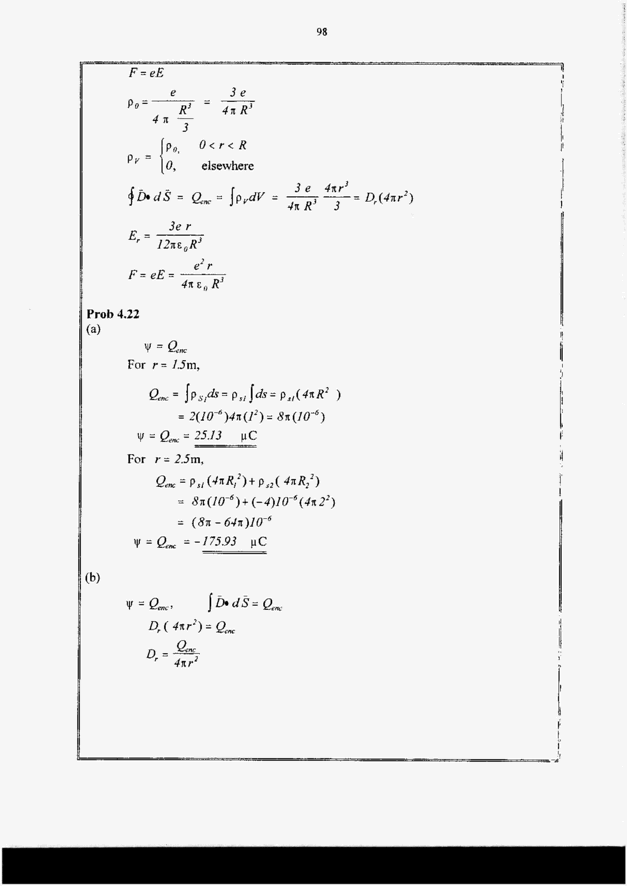 98
F = eE
ρ₀ = e / (4π R³/3) = 3e / (4π R³)
ρ_V = { ρ₀, 0 < r < R
0, elsewhere
∮ D̄ • d S̄ = Q_enc = ∫ρ_V dV = (3e / 4π R³) (4πr³ / 3) = D_r (4πr²)
E_r = 3e r / (12πε₀R³)
F = eE = e² r / (4π ε₀ R³)
Prob 4.22
(a)
ψ = Q_enc
For r = 1.5m,
Q_enc = ∫ρ_S1 ds = ρ_s1 ∫ds = ρ_s1 (4πR² )
= 2(10⁻⁶)4π(1²) = 8π(10⁻⁶)
ψ = Q_enc = 25.13 μC
For r = 2.5m,
Q_enc = ρ_s1 (4πR₁²) + ρ_s2 ( 4πR₂²)
= 8π(10⁻⁶) + (−4)10⁻⁶(4π2²)
= (8π − 64π)10⁻⁶
ψ = Q_enc = −175.93 μC
(b)
ψ = Q_enc, ∫ D̄ • d S̄ = Q_enc
D_r ( 4πr²) = Q_enc
D_r = Q_enc / 4πr²